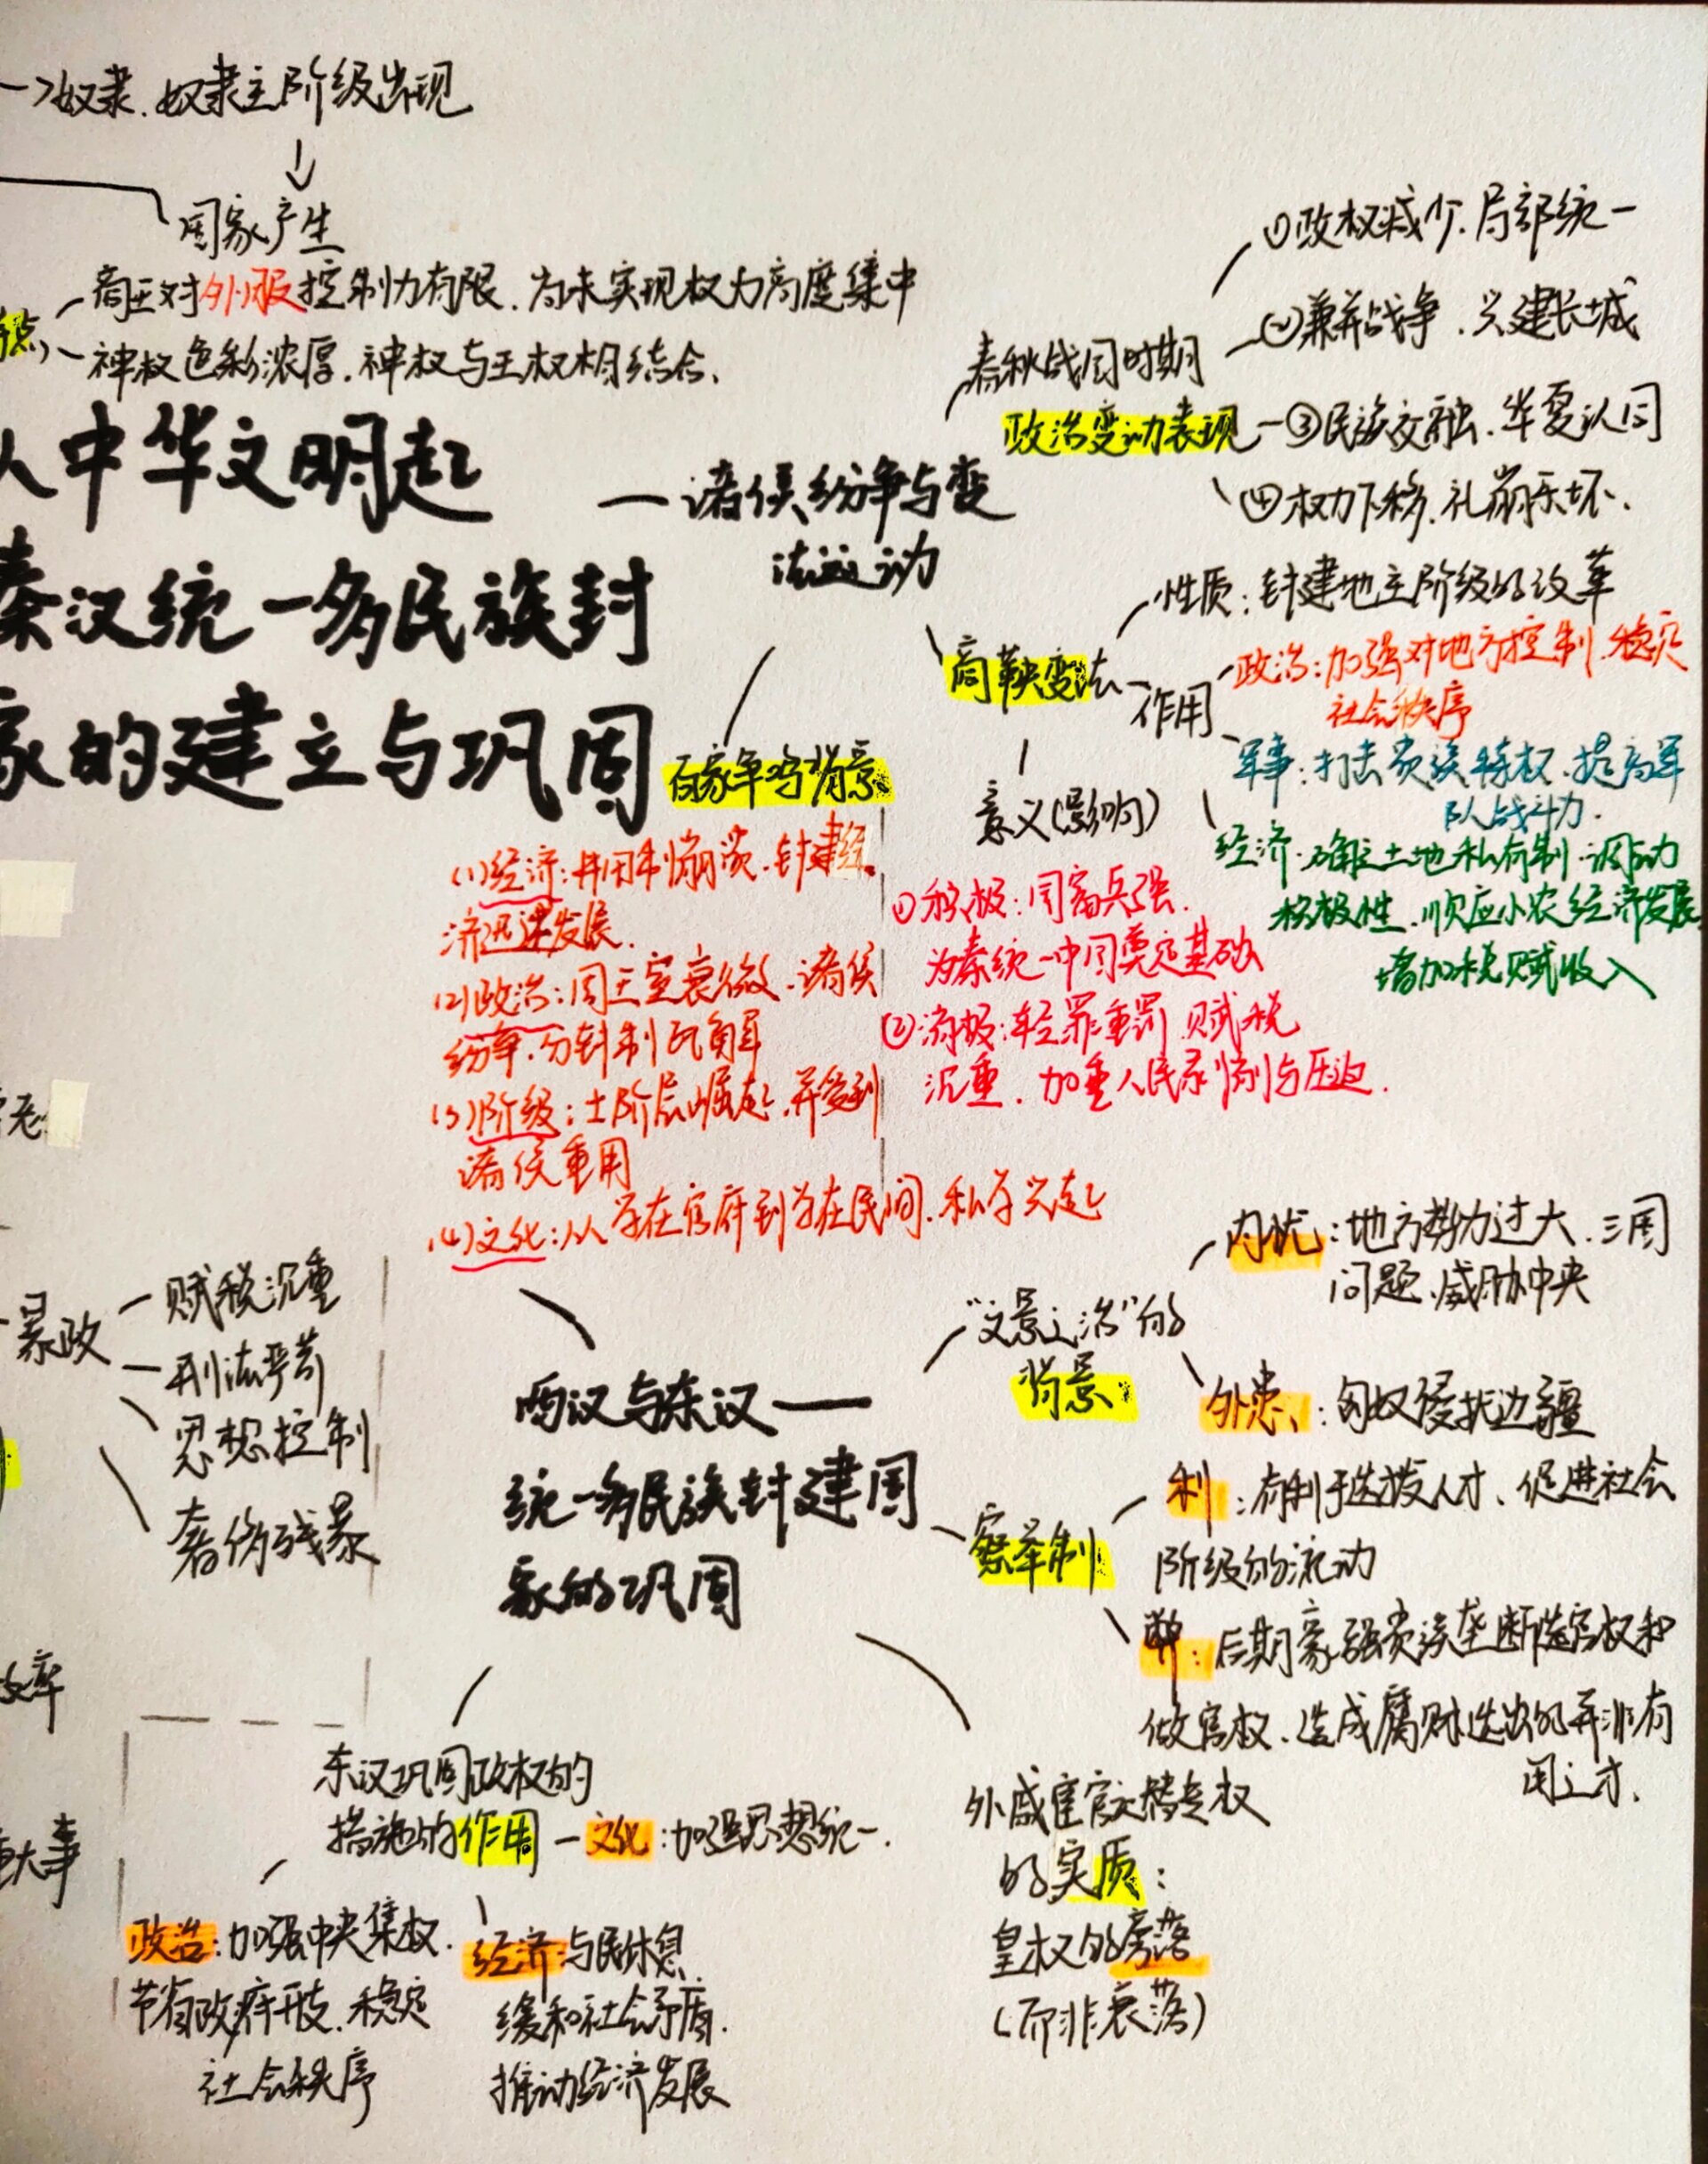 →奴隶、奴隶主阶级出现
国家产生
商王对外服控制力有限、尚未实现权力高度集中
特点
神权色彩浓厚、神权与王权相结合、
从中华文明起
秦汉统一多民族封
家的建立与巩固
诸侯纷争与变
法运动
春秋战国时期
政治变动表现
①政权减少、局部统一
②兼并战争、兴建长城
③民族交融、华夏认同
④权力下移、礼崩乐坏、
商鞅变法
性质:封建地主阶级的改革
作用
政治:加强对地方控制、稳定
社会秩序
军事:打击贵族特权、提高军
队战斗力.
经济:确立土地私有制、调动
积极性、顺应小农经济发展
增加税赋收入
意义(影响)
①积极:国富兵强、
为秦统一中国奠定基础
②消极:轻罪重罚、赋税
沉重、加重人民剥削与压迫.
百家争鸣背景
(1)经济:井田制崩溃、封建经
济迅速发展、
(2)政治:周王室衰微、诸侯
纷争、分封制瓦解
(3)阶级:士阶层崛起、并受到
诸侯重用
(4)文化:从学在官府到学在民间、私学兴起
暴政
赋税沉重
刑法严苛
思想控制
奢侈残暴
大事
西汉与东汉——
统一多民族封建国
家的巩固
"文景之治"的
背景
内忧:地方势力过大、王国
问题、威胁中央
外患:匈奴侵扰边疆
察举制
利:有利于选拔人才、促进社会
阶级的流动
弊:后期豪强贵族垄断选官权和
做官权、造成腐败选出的并非有
用之才、
外戚宦官交替专权
的实质:
皇权的旁落
(而非衰落)
东汉巩固政权的
措施的作用
文化:加强思想统一.
政治:加强中央集权、
节省政府开支、稳定
社会秩序
经济:与民休息
缓和社会矛盾、
推动经济发展